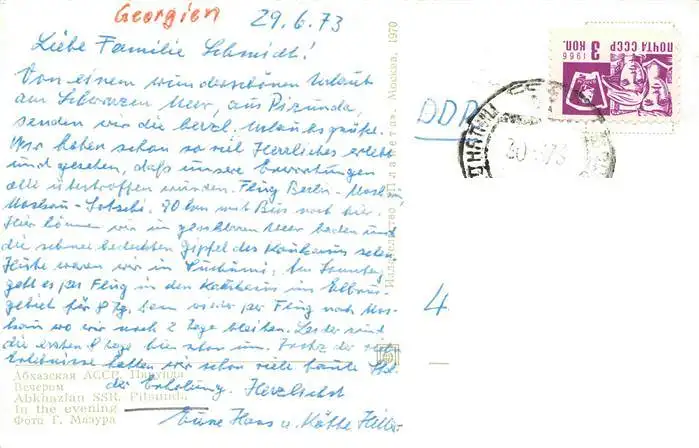 Georgien 29.6.73
Liebe Familie Schmidt!
Von einem wunderschönen Urlaub
am Schwarzen Meer, aus Pizunda,
senden wir die herzl. Urlaubsgrüße.
Wir haben schon so viel Herrliches erlebt
und gesehen, daß unsere Erwartungen
alle übertroffen wurden. Flug Berlin - Moskau
Moskau - Sotschi, 70 km mit Bus nach hier.
Hier können wir im Meer baden und
die schneebedeckten Gipfel des Kaukasus sehen.
Heute waren wir in Suchumi. Am Sonntag
geht es per Flug in den Kaukasus im Elbrus-
gebiet für 8 Tg. dann wieder per Flug nach Mos-
kau wo wir noch 2 Tage bleiben. Leider sind
die ersten 8 Tage hier schon um. Trotz der viel
Erlebnisse hatten wir schon viele
der Erholung. Herzlichst
Eure Hans u. Käthe Hiller
DDR
4
ПОЧТА СССР
1966
3 КОП.
30 73
Издательство „Планета". Москва. 1970
Абхазская АССР. Пицунда
Вечером
Abkhazian SSR. Pitsunda
In the evening
Фото Г. Мазура